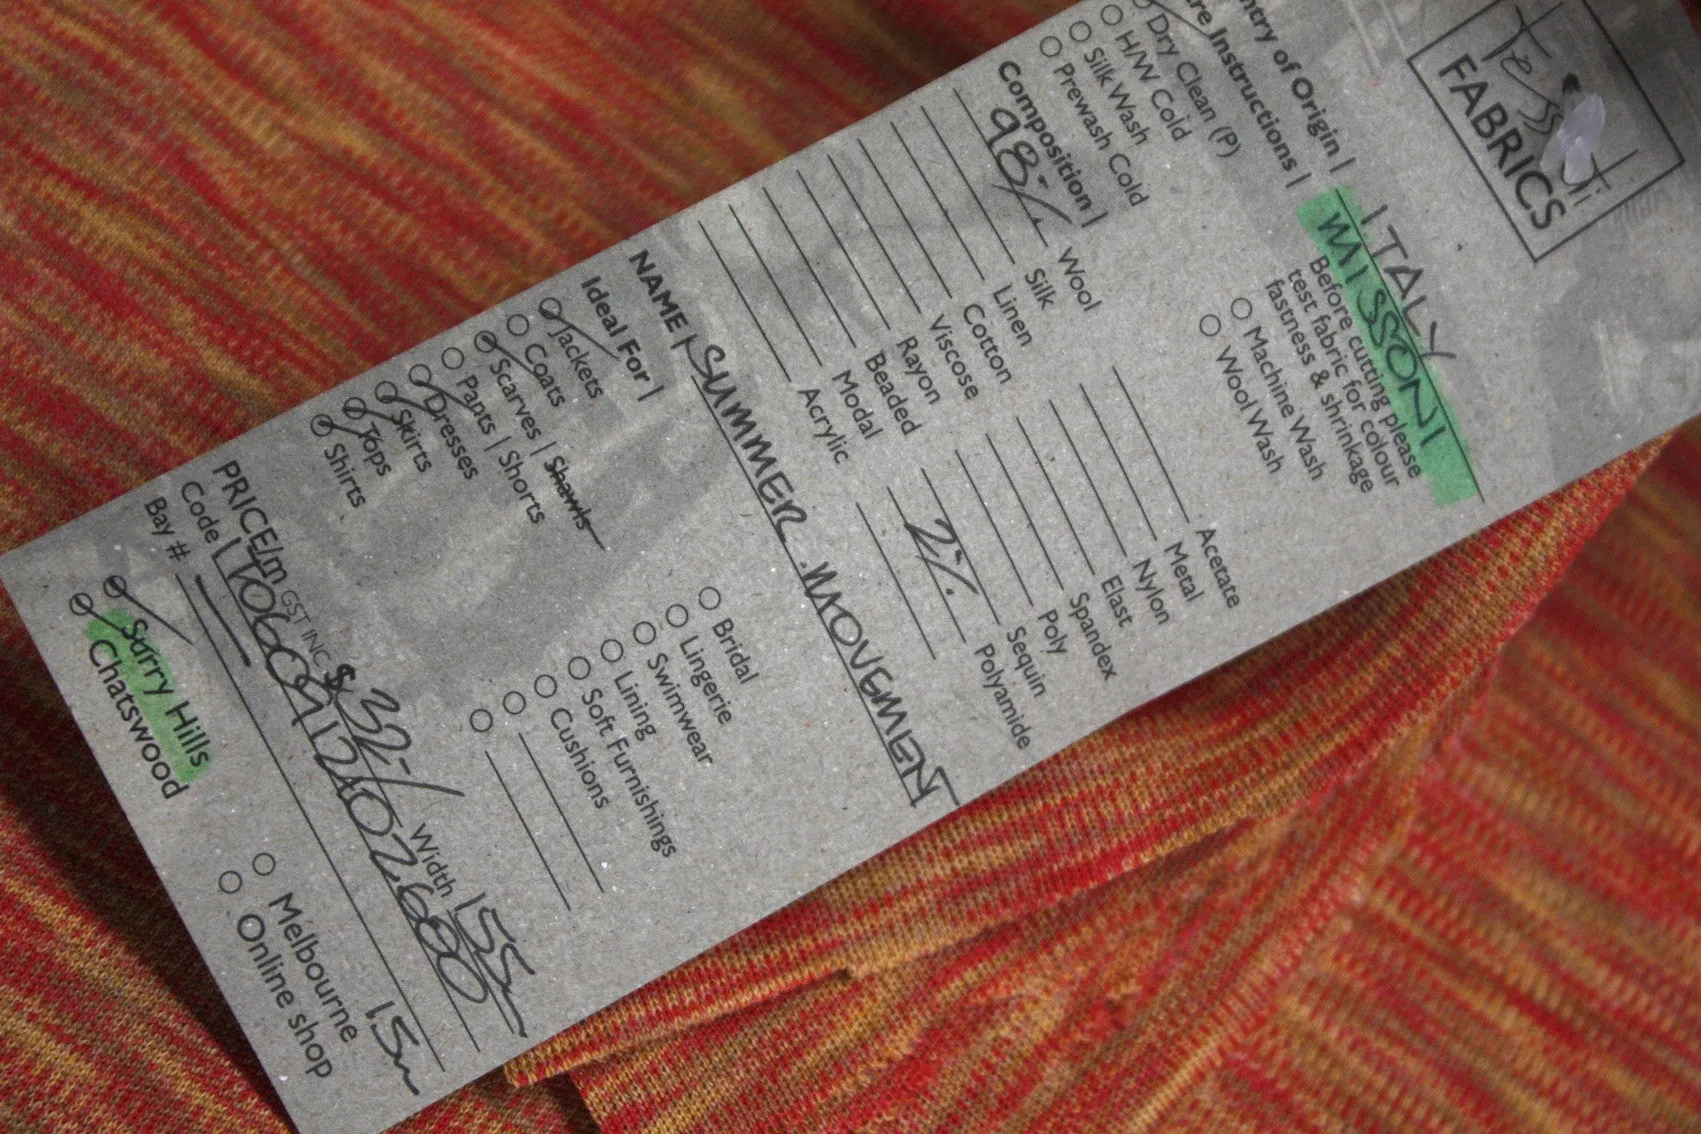 Tessuti
FABRICS
ntry of Origin | ITALY
MISSONI
re Instructions |
Before cutting please
test fabric for colour
fastness & shrinkage
Dry Clean (P)
H/W Cold
Silk Wash
Prewash Cold
Machine Wash
Wool Wash
Composition |
98% Wool
Silk
Linen
Cotton
Viscose
Rayon
Beaded
Modal
Acrylic
Acetate
Metal
Nylon
Elast
Spandex
Poly
Sequin
2% Polyamide
NAME | SUMMER MOVEMENT
Ideal For |
Jackets
Coats
Scarves | Shawls
Pants | Shorts
Dresses
Skirts
Tops
Shirts
Bridal
Lingerie
Swimwear
Lining
Soft Furnishings
Cushions
PRICE/m GST INC $ 32-/ Width 155
Code
Bay # — 15m
Surry Hills
Chatswood
Melbourne
Online shop